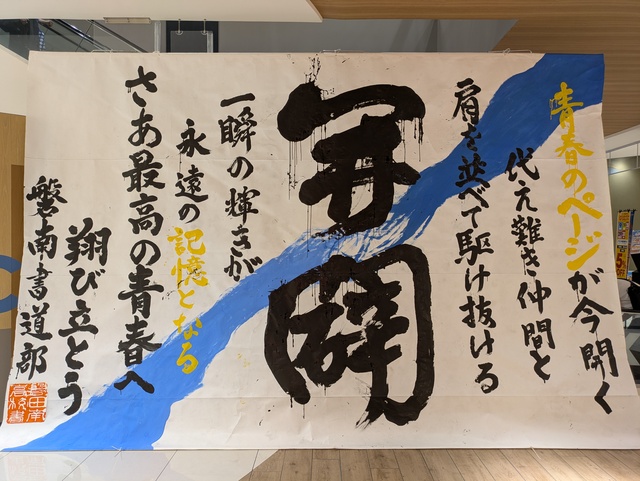 青春のページが今開く
代え難き仲間と
肩を並べて駆け抜ける
開闢
一瞬の輝きが
永遠の記憶となる
さあ最高の青春へ
翔び立とう
磐南書道部
磐田南
高校書